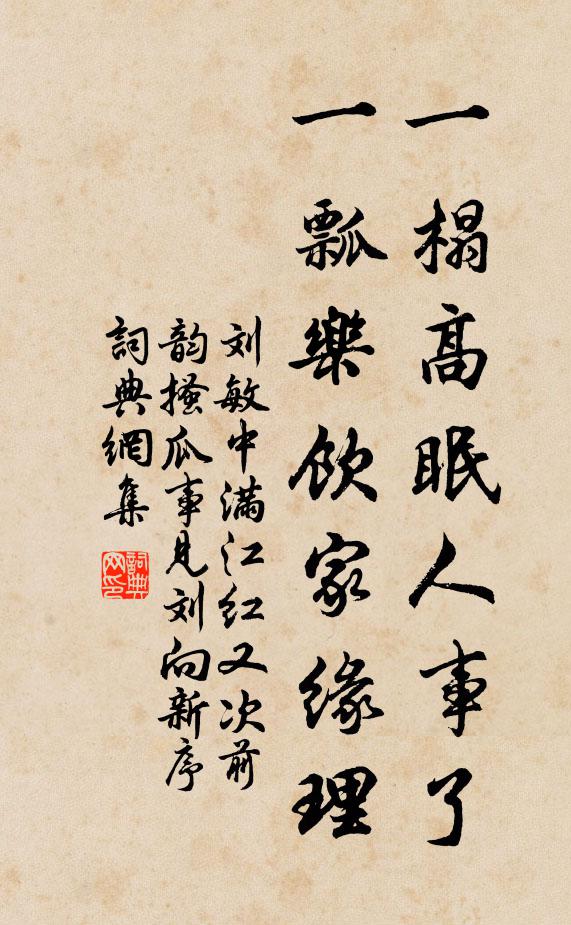 一榻高眠人事了
一瓢樂飲家缘理
刘敏中满江红又次前
韵搔瓜事見刘向新序
詞典網集
詞典
网印